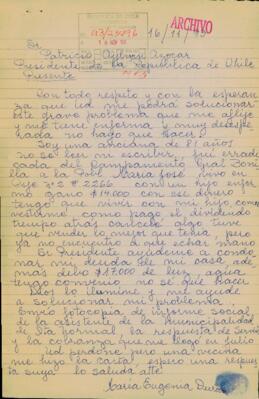 ARCHIVO
16/11/93
Sr.
Patricio Aylwin Azocar
Presidente de la Republica de Chile
Presente
Con todo respeto y con la esperan
za que Ud me podrá solucionar
este grave problema que me aflije
y me tiene enferma y muy desespe
rada no hago que hacer
Soy una anciana de 81 años
no sé leer ni escribir, fui erradi
cada de Campamento
a la Pobl María José, vivo en
2266 con un hijo enfer
mo gano $14.000 con ese dinero
tengo que vivir con mi hijo, como
como pago el dividendo
tiempo atrás algo tuve
que vender lo mejor que tenia, pero
ya no encuentro a que echar mano
Sr Presidente ayudeme a condo
nar mi deuda de mi casa, ade
mas debo $17.000 de luz, agua
tengo convenio no sé que hacer
Dios lo ilumine y me ayude
a solucionar mi problema
Envio fotocopia de informe social
de la asistente de la Municipalidad
de Sta normal la respuesta de Serviu
y la cobranza que me llegó en Julio
Ud perdone pero una vecina
me hizo la carta, espero una respues
ta suya lo saluda atte
María Eugenia